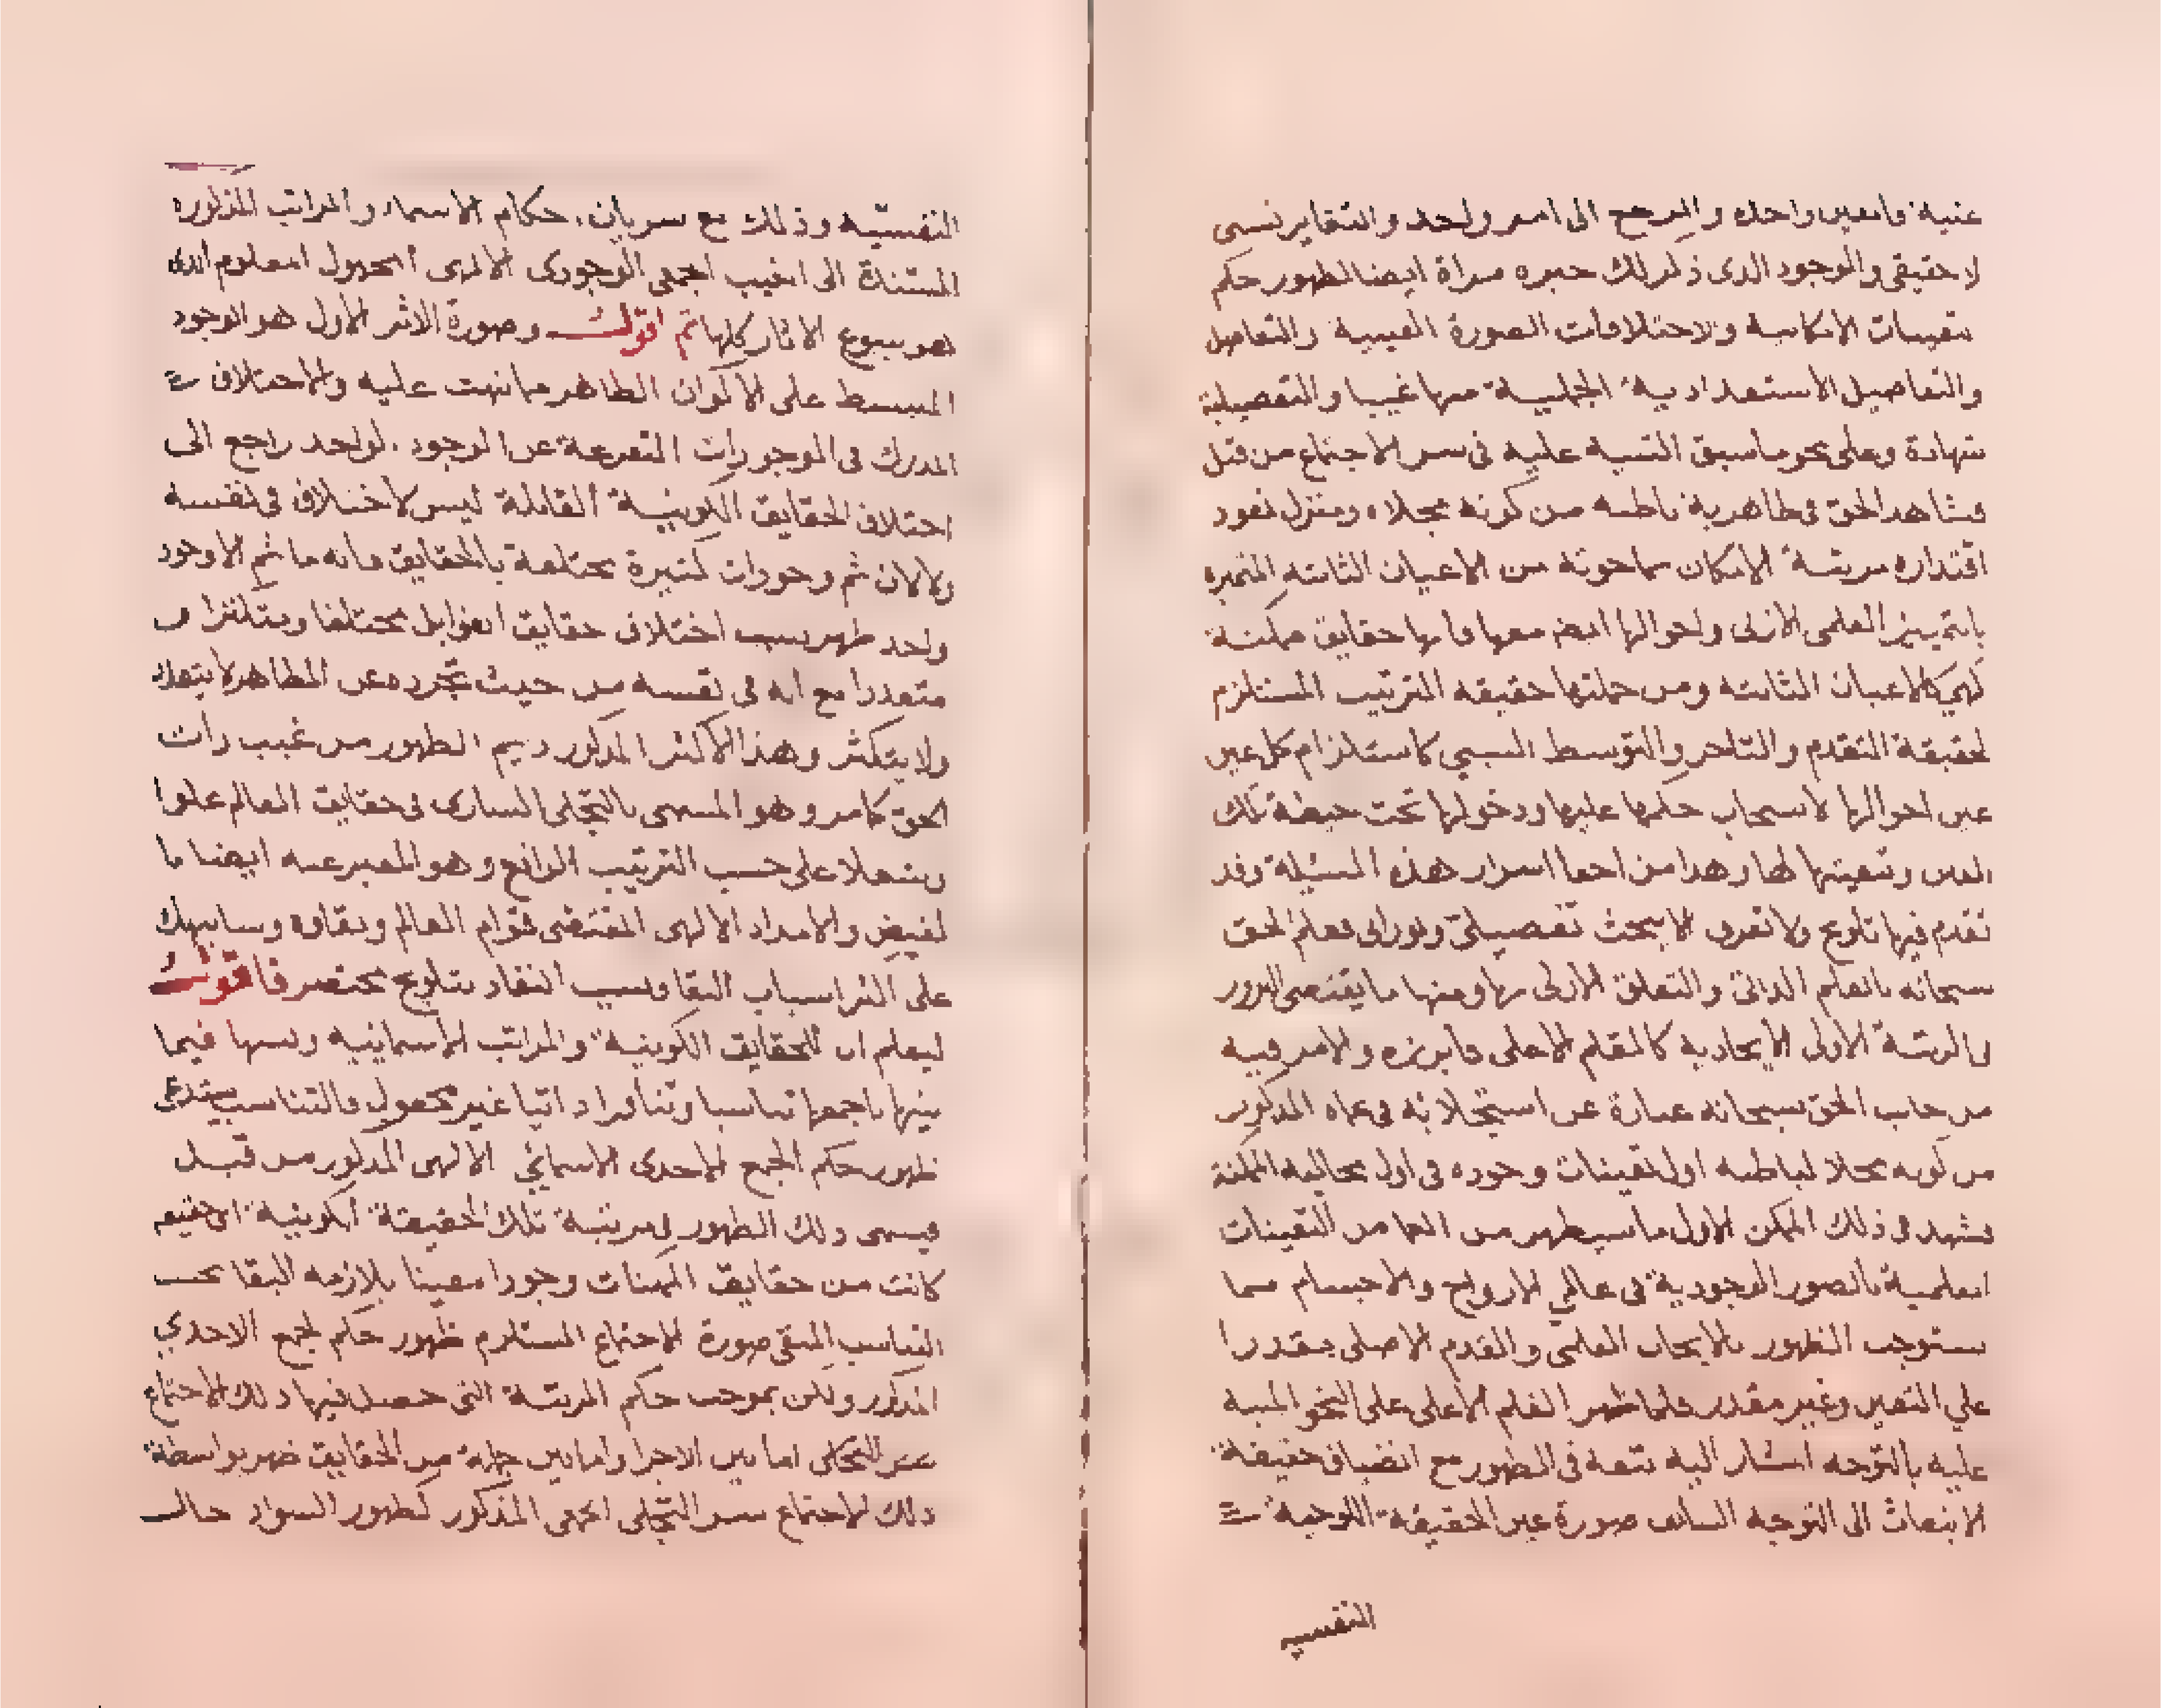 عنبه فالعين واحده والمرجع الى امر واحد والتغاير نسبى
لا حقيقى والوجود الذى ذكر لك خبره مراة ايضا لظهور حكم
تعينات الامكانيه والاختلافات الصورة العينية والتفاصيل
والتفاصيل الاستعدادية الجملية منها غيبا والتفصيلية
شهادة وعلى نحو ما سبق التنبيه عليه فى سر الاجتماع من قبل
فشاهد الحق فى ظاهريه باطنه من كونه مجلاه ومنزل نفود
اقتداره مرتبة الامكان بما حوته من الاعيان الثابته المتميزه
بالتمييز العلمى الازلى واحوالها ايضا معها فانها حقايق ممكنة
لهى كالاعيان الثابته ومن جملتها حقيقه الترتيب المستلزم
لحقيقة التقدم والتاخر والتوسط النسبى كاستلزام كل عين
عين احوالها لانسحاب حكمها عليها ودخولها تحت حيطة تلك
العين وتبعيتها لها وهذا من اخفا اسرار هذه المسئلة وقد
تقدم فيها تلويح ولا تعرف الا ببحث تفصيلى ونورانى فعلم الحق
سبحانه بالعلم الذاتى والتعلق الازلى بها ومنها ما يقتضى البروز
فى المرتبة الاولى الايجادية كالقلم الاعلى فابرزه والامر فيه
من جانب الحق سبحانه عبارة عن استجلائه فى عماه المذكور
من كونه مجلا لباطنه اول تعينات وجوده فى اول مجاليه الممكنة
فشهد فى ذلك الممكن الاول ما سيظهر من العما من التعينات
العلمية بالصور الوجودية فى عالمى الارواح والاجسام مما
يستوجب الظهور بالايجاب العلمى والقدم الاصلى مقدرا
على التعيين وغير مقدر فلما ظهر القلم الاعلى على النحو المنبه
عليه بالتوجه المشار اليه تتعه فى الظهور مع انضياف حقيقة
الانبعاث الى التوجه السابق صورة عين الحقيقة اللوحية
النفسيه
النفسيّه وذلك مع سريان احكام الاسماء والمراتب المذكوره
المستندة الى الغيب الجمعى الوجودى الالهى المجهول المعلوم الذى
هو ينبوع الاثار كلها ثم اقول وصورة الاثر الاول هو الوجود
المنبسط على الاكوان الظاهر ما نبهت عليه والاختلاف
المدرك فى الموجودات المتفرعة عن الوجود الواحد راجع الى
اختلاف الحقايق الكونية القابلة ليس لاختلاف فى نفسه
ولا لان ثم وجودات كثيرة مختلفة بالحقايق فانه ما ثم الا وجود
واحد ظهر بسبب اختلاف حقايق القوابل مختلفا ومتكثرا و
متعددا مع انه فى نفسه من حيث تجرده عن المظاهر لا يتعدد
ولا يتكثر وهذا الاثر المذكور دايم الظهور من غيب ذات
الحق كما مر وهو المسمى بالتجلى السارى فى حقايق العالم علوا
وسفلا على حسب الترتيب الواقع وهو المعبر عنه ايضا با
لفيض والامداد الالهى المقتضى قوام العالم وبقاوه وسانبهك
على اثر اسباب البقا وسبب النفاد بتلويح مختصر فاقول
ليعلم ان للحقايق الكونية والمراتب الاسمايئيه ونسبها فيما
بينها باجمعها تناسبا وتنافرا ذاتيا غير مجعول فالتناسب يستدعى
ظهور حكم الجمع الاحدى الاسمائي الالهى المذكور من قبل
فيسمى ذلك الظهور فى مرتبة تلك الحقيقة الكونية اى حقيقه
كانت من حقايق الممكنات وجودا معينا يلازمه البقا بحسب
التناسب المبقى صورة الاجتماع المستلزم ظهور حكم الجمع الاحدي
المذكور ولكن بموجب حكم المرتبة التى حصل فيها ذلك الاجتماع
عين التجلى اما بين الاجزا واما بين جملة من الحقايق ظهر بواسطة
ذلك الاجتماع سر التجلى الجمعى المذكور كظهور السواد حال